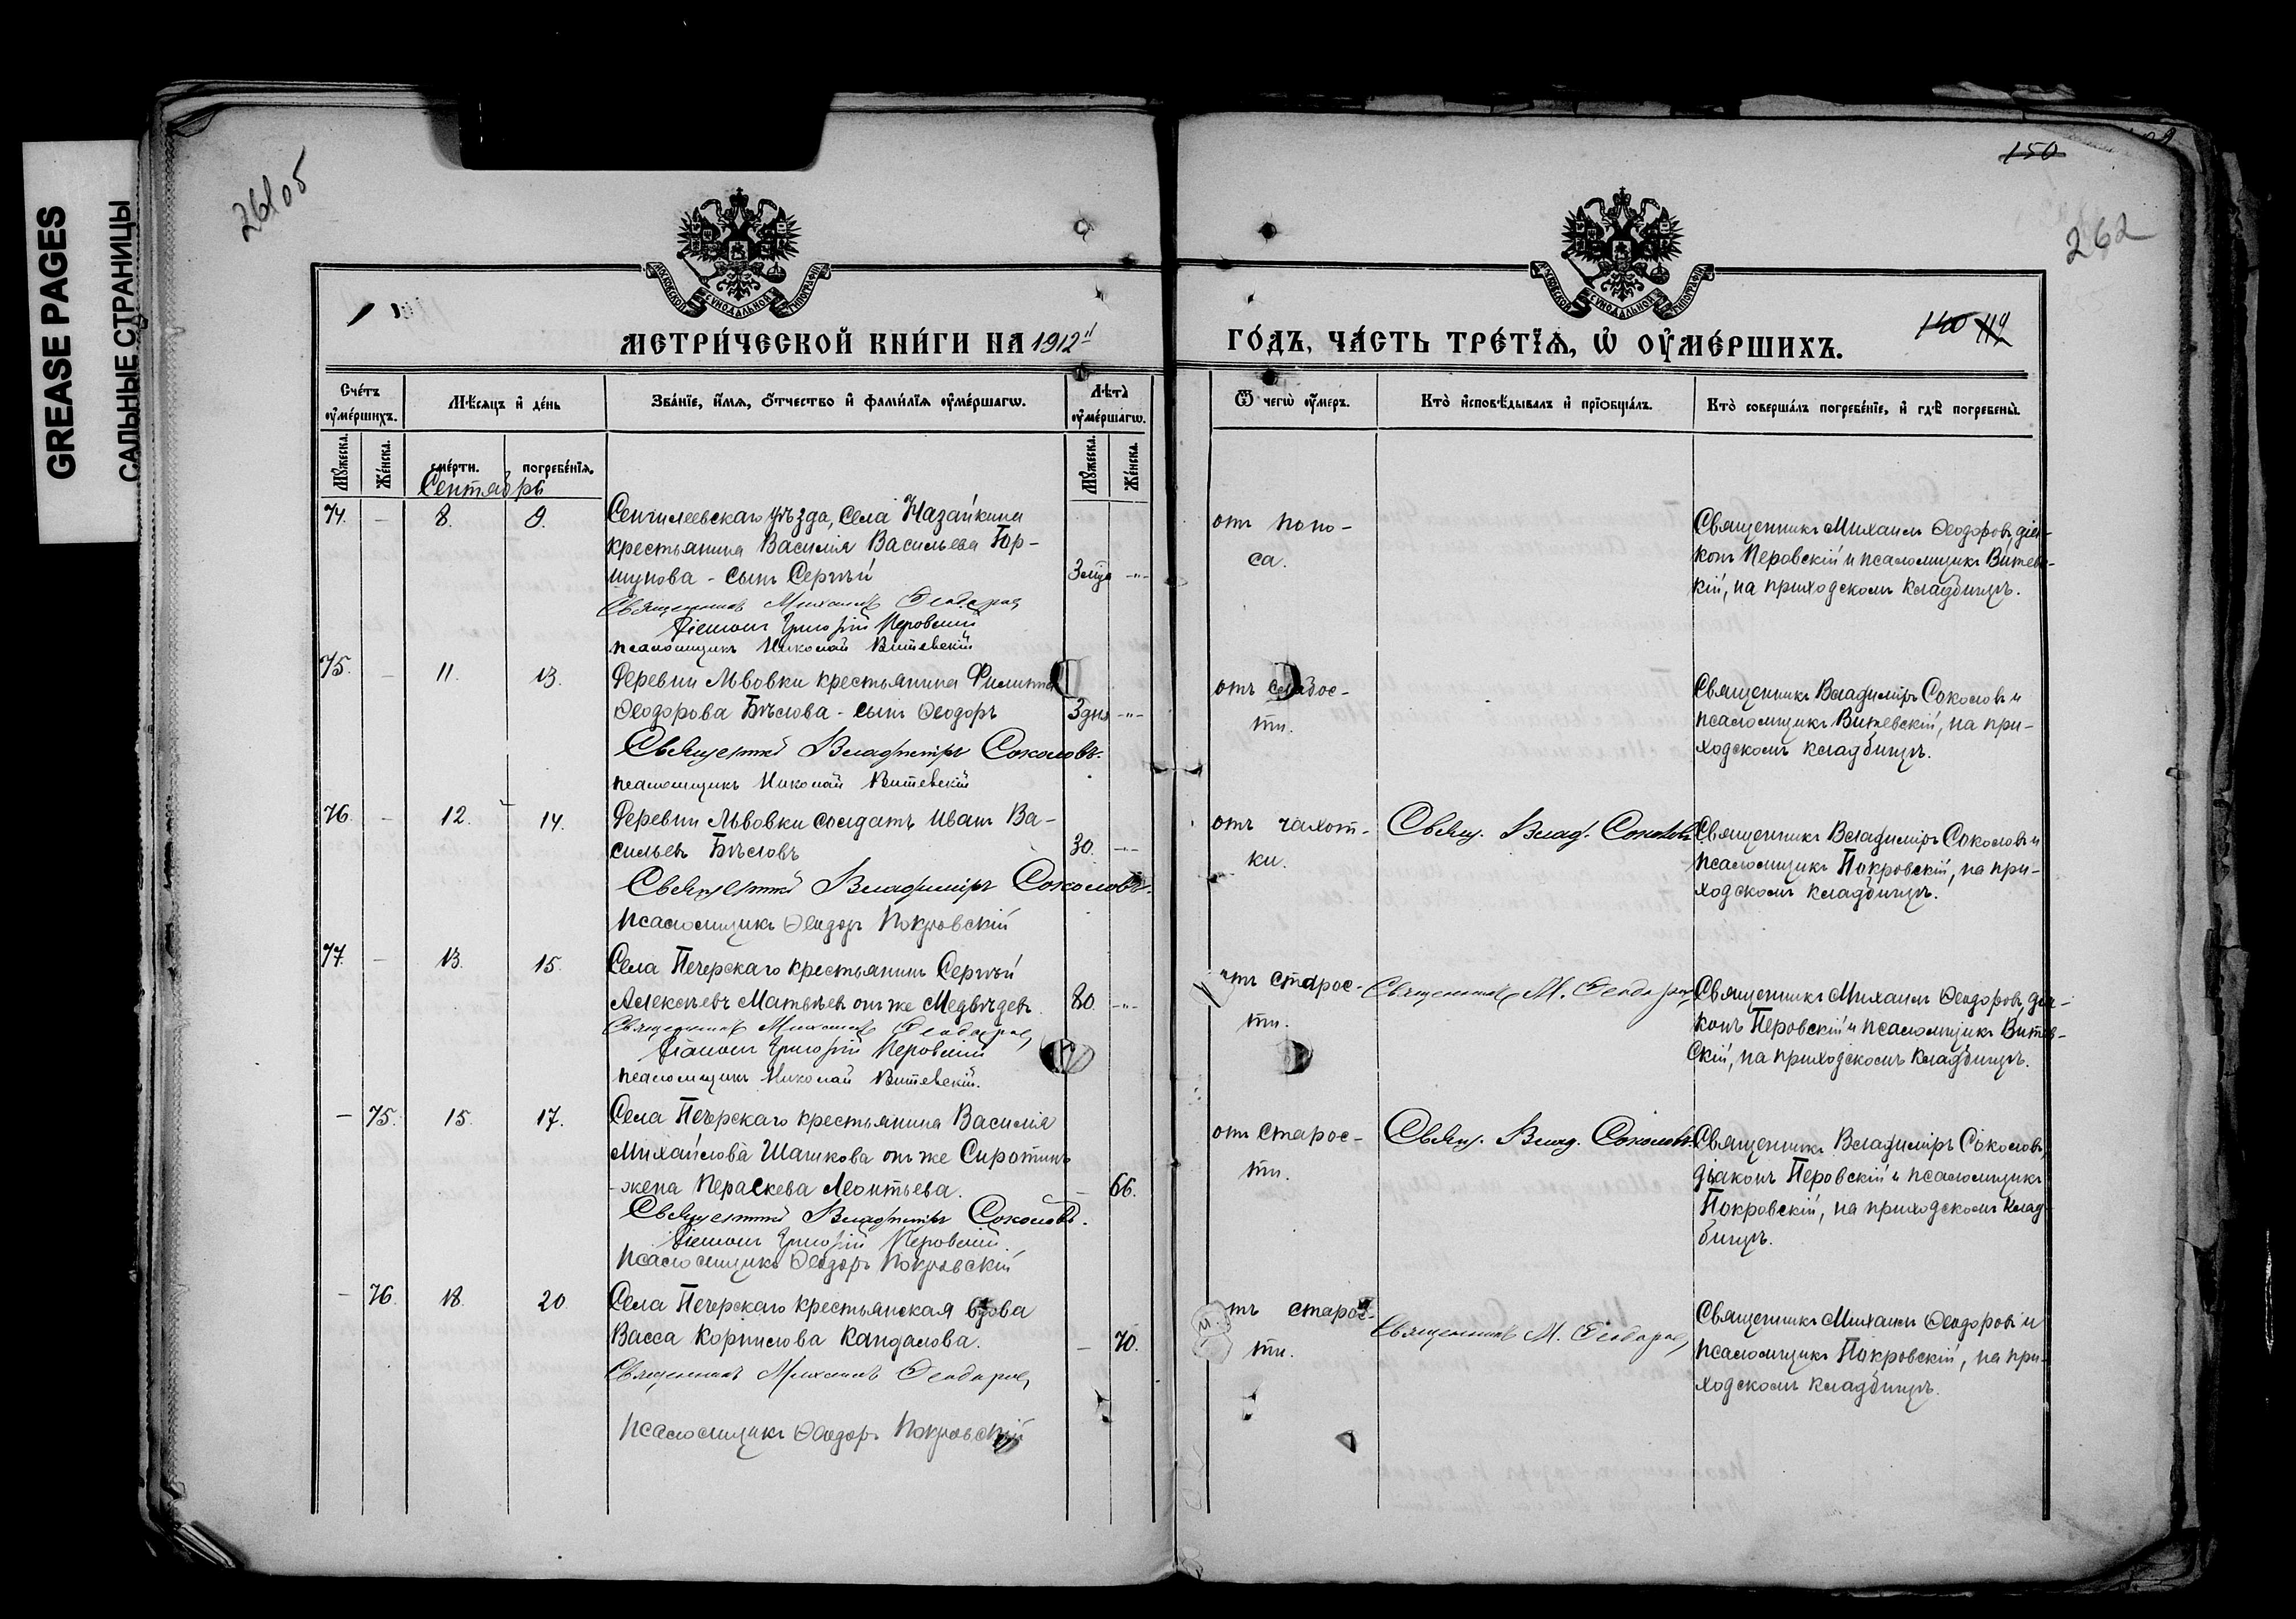 GREASE PAGES
САЛЬНЫЕ СТРАНИЦЫ
150
262
МОСКОВСКОЙ СѴНОДАЛЬНОЙ ТИПОГРАФІИ
МОСКОВСКОЙ СѴНОДАЛЬНОЙ ТИПОГРАФІИ
МЕТРИ́ЧЕСКОЙ КНИ́ГИ НА 1912й
ГО́ДЪ, ЧА́СТЬ ТРЕ́ТЇѦ, Ѽ ОУ҆МЕ́РШИХЪ.
Сче́тъ оу҆ме́ршихъ.
Мѣ́сяцъ и҆ де́нь
Зва́нїе, и҆́мѧ, ѻ҆́тчество и҆ фами́лїѧ оу҆ме́ршагѡ.
Лѣ́та оу҆ме́ршагѡ.
Ѿ чегѡ̀ оу҆́меръ.
Кто̀ и҆сповѣ́дывалъ и҆ прїѡбща́лъ.
Кто̀ соверша́лъ погребе́нїе, и҆ гдѣ̀ погребены̀.
Мꙋ́жеска.
Же́нска.
сме́рти.
погребе́нїѧ.
Мꙋ́жеска.
Же́нска.
Сентябрь
74. – 8. 9. Сенгилеевскаго уѣзда, села Назайкина
крестьянина Василія Васильева Гор-
шунова - сынъ Сергѣй 3 мѣс. -"-
Священникъ Михаилъ Ѳеодоровъ
Діаконъ Григорій Перовскій
псаломщикъ Николай Витевскій
отъ поно-
са.
Священникъ Михаилъ Ѳеодоровъ, діа-
конъ Перовскій и псаломщикъ Витев-
скій, на приходскомъ кладбищѣ.
75. – 11. 13. Деревни Львовки крестьянина Филиппа
Ѳеодорова Бѣлова - сынъ Ѳеодоръ 3 дня -"-
Священникъ Владиміръ Соколовъ.
псаломщикъ Николай Витевскій
отъ слабос-
ти.
Священникъ Владиміръ Соколовъ и
псаломщикъ Витевскій, на при-
ходскомъ кладбищѣ.
76. – 12. 14. Деревни Львовки солдатъ Иванъ Ва-
сильевъ Бѣловъ 30. -"-
Священникъ Владиміръ Соколовъ.
Псаломщикъ Ѳеодоръ Покровскій
отъ чахот-
ки.
Свящ. Влад. Соколовъ
Священникъ Владиміръ Соколовъ и
псаломщикъ Покровскій, на при-
ходскомъ кладбищѣ.
77. – 13. 15. Села Печерскаго крестьянинъ Сергѣй
Алексѣевъ Матвѣевъ онъ же Медвѣдевъ. 80. -"-
Священникъ Михаилъ Ѳеодоровъ
Діаконъ Григорій Перовскій
псаломщикъ Николай Витевскій.
отъ старос-
ти.
Священникъ М. Ѳеодоровъ
Священникъ Михаилъ Ѳеодоровъ, діа-
конъ Перовскій и псаломщикъ Витев-
скій, на приходскомъ кладбищѣ.
– 75. 15. 17. Села Печерскаго крестьянина Василія
Михайлова Шашкова онъ же Сиротинъ
- жена Параскева Леонтьева. – 66.
Священникъ Владиміръ Соколовъ.
Діаконъ Григорій Перовскій.
Псаломщикъ Ѳеодоръ Покровскій
отъ старос-
ти.
Свящ. Влад. Соколовъ
Священникъ Владиміръ Соколовъ,
діаконъ Перовскій и псаломщикъ
Покровскій, на приходскомъ клад-
бищѣ.
– 76. 18. 20. Села Печерскаго крестьянская вдова
Васса Корнилова Кандалова. – 70.
Священникъ Михаилъ Ѳеодоровъ
Псаломщикъ Ѳеодоръ Покровскій
отъ старос-
ти.
Священникъ М. Ѳеодоровъ
Священникъ Михаилъ Ѳеодоровъ и
псаломщикъ Покровскій, на при-
ходскомъ кладбищѣ.